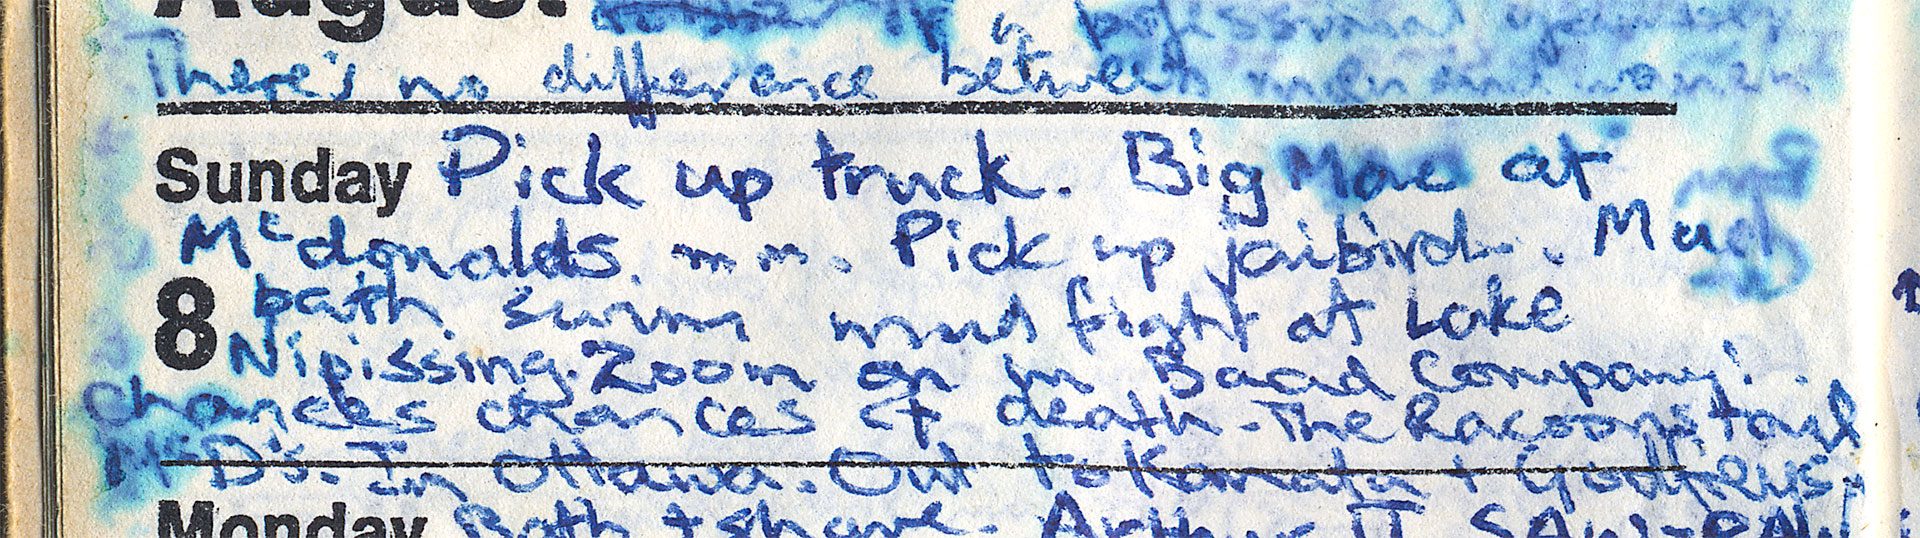 August
There's no difference between men and women
Sunday Pick up truck. Big Mac at
Mcdonalds. mm. Pick up jailbird. Mud
bath swim mud fight at Lake
8 Nipissing. Zoom on in Baad Company!
chances chances of death - The Racoon's tail
McD's. In Ottawa. Out to Kanata + Godfreys.
Monday Bath + shave. Arthur II